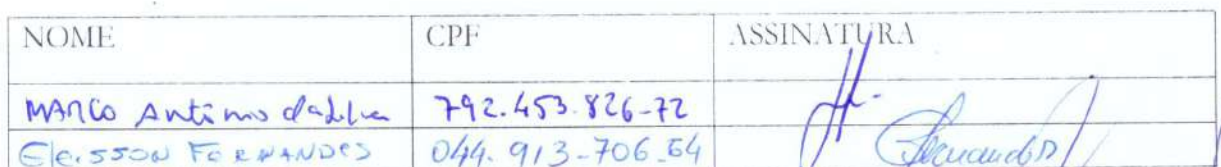 NOME CPF ASSINATURA
MARCO Antônio da Silva 792.453.826-72
Gleisson FERNANDES 044.913-706-64 Fernandes